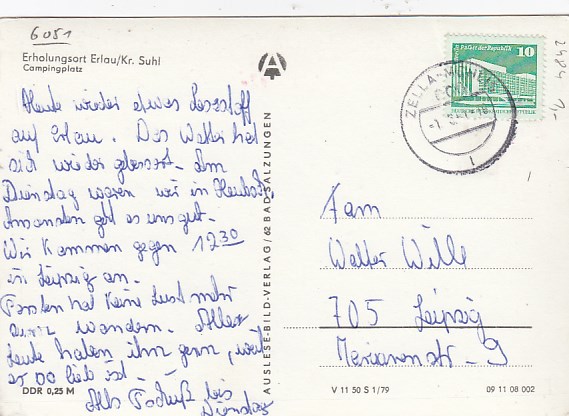 6051
Erholungsort Erlau/Kr. Suhl
Campingplatz
Heute wieder etwas Lesestoff
auf Erlau. Das Wetter hat
sich wieder gebessert. Am
Dienstag waren wir in
Ansonsten geht es uns gut.
Wir kommen gegen 12³⁰
in Leipzig an.
Torsten hat keine Lust mehr
zum wandern. Alle
Leute haben ihn gern, weil
er so lieb ist.
Alles bis
Dienstag
DDR 0,25 M
AUSLESE-BILD-VERLAG/62 BAD SALZUNGEN
10
Palast der Republik
ZELLA-MEHLIS
2484 1,-
Fam
Walter Wille
705 Leipzig
Mariannenstr. 9
V 11 50 S 1/79
09 11 08 002